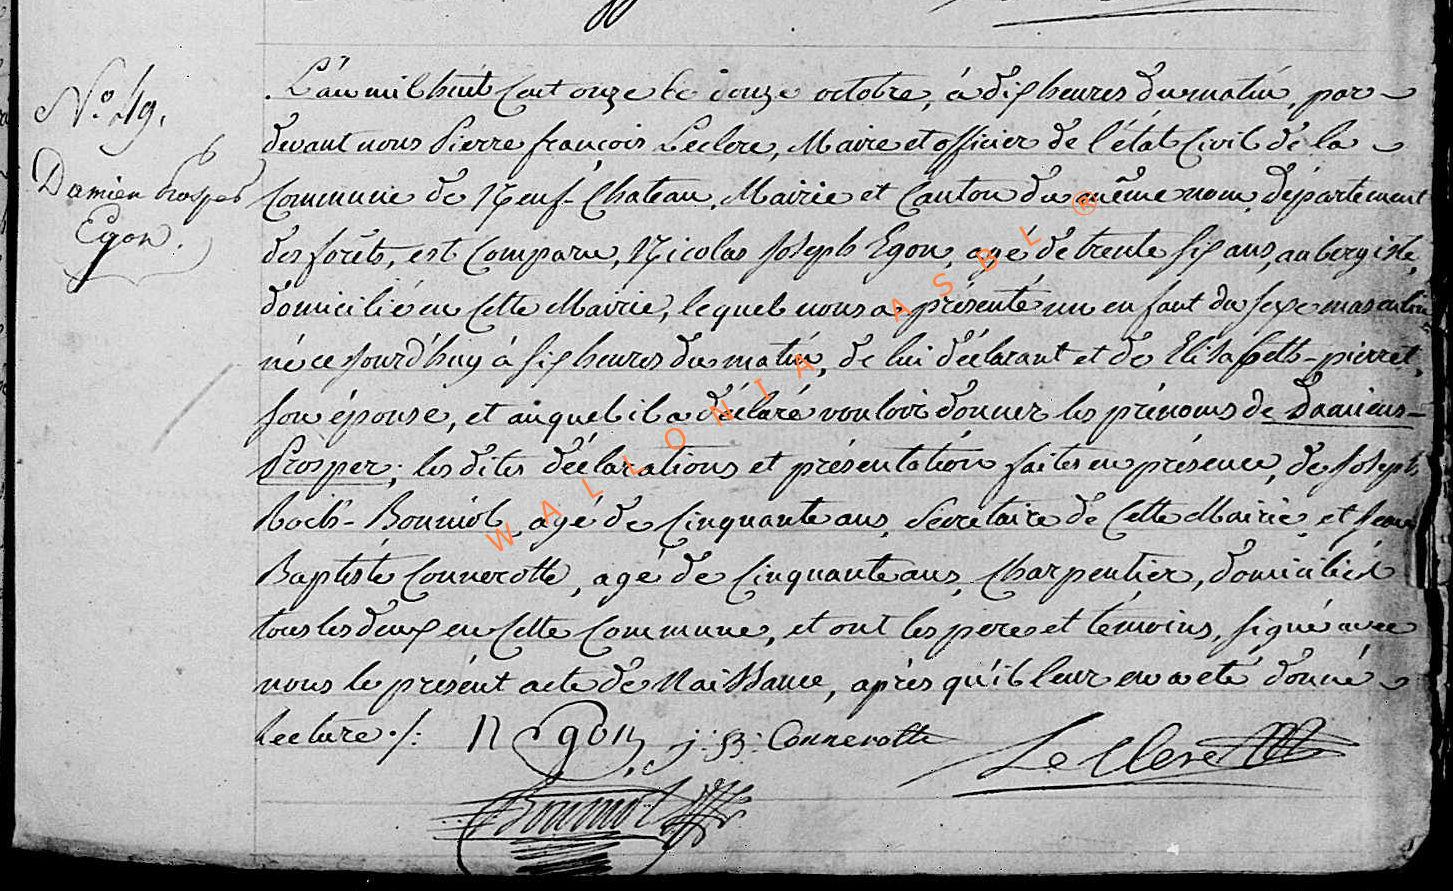 N.º 49.
Damien Prosper
Egon.
L'an mil huit Cent onze le douze octobre, à dix heures du matin, par-
devant nous Pierre françois Leclerc, Maire et officier de l'état Civil de la
Commune de Neuf-Chateau, Mairie et Canton du même nom, département
des forêts, est Comparu, Nicolas Joseph Egon, agé de trente six ans, aubergiste,
domicilié en Cette Mairie, lequel nous a présenté un enfant du sexe masculin
né ce jourd'huy à six heures du matin, de lui déclarant et de Elisabeth-pierret,
son épouse, et auquel il a déclaré vouloir donner les prénoms de Damiens-
Prosper; les dites déclarations et présentation faites en présence, de Joseph
Roch-Bourniol, agé de Cinquante ans, Sécrétaire de Cette Mairie, et Jean
Baptiste Connerotte, agé de Cinquante ans, Charpentier, domiciliés
tous les deux en Cette Commune, et ont les pere et témoins, signé avec
nous le présent acte de Naissance, après qu'il leur en a eté donné
lecture ./:
N Egon
j: B: Connerotte
Le Clerc
Bourniol
WALLONIA ASBL ®